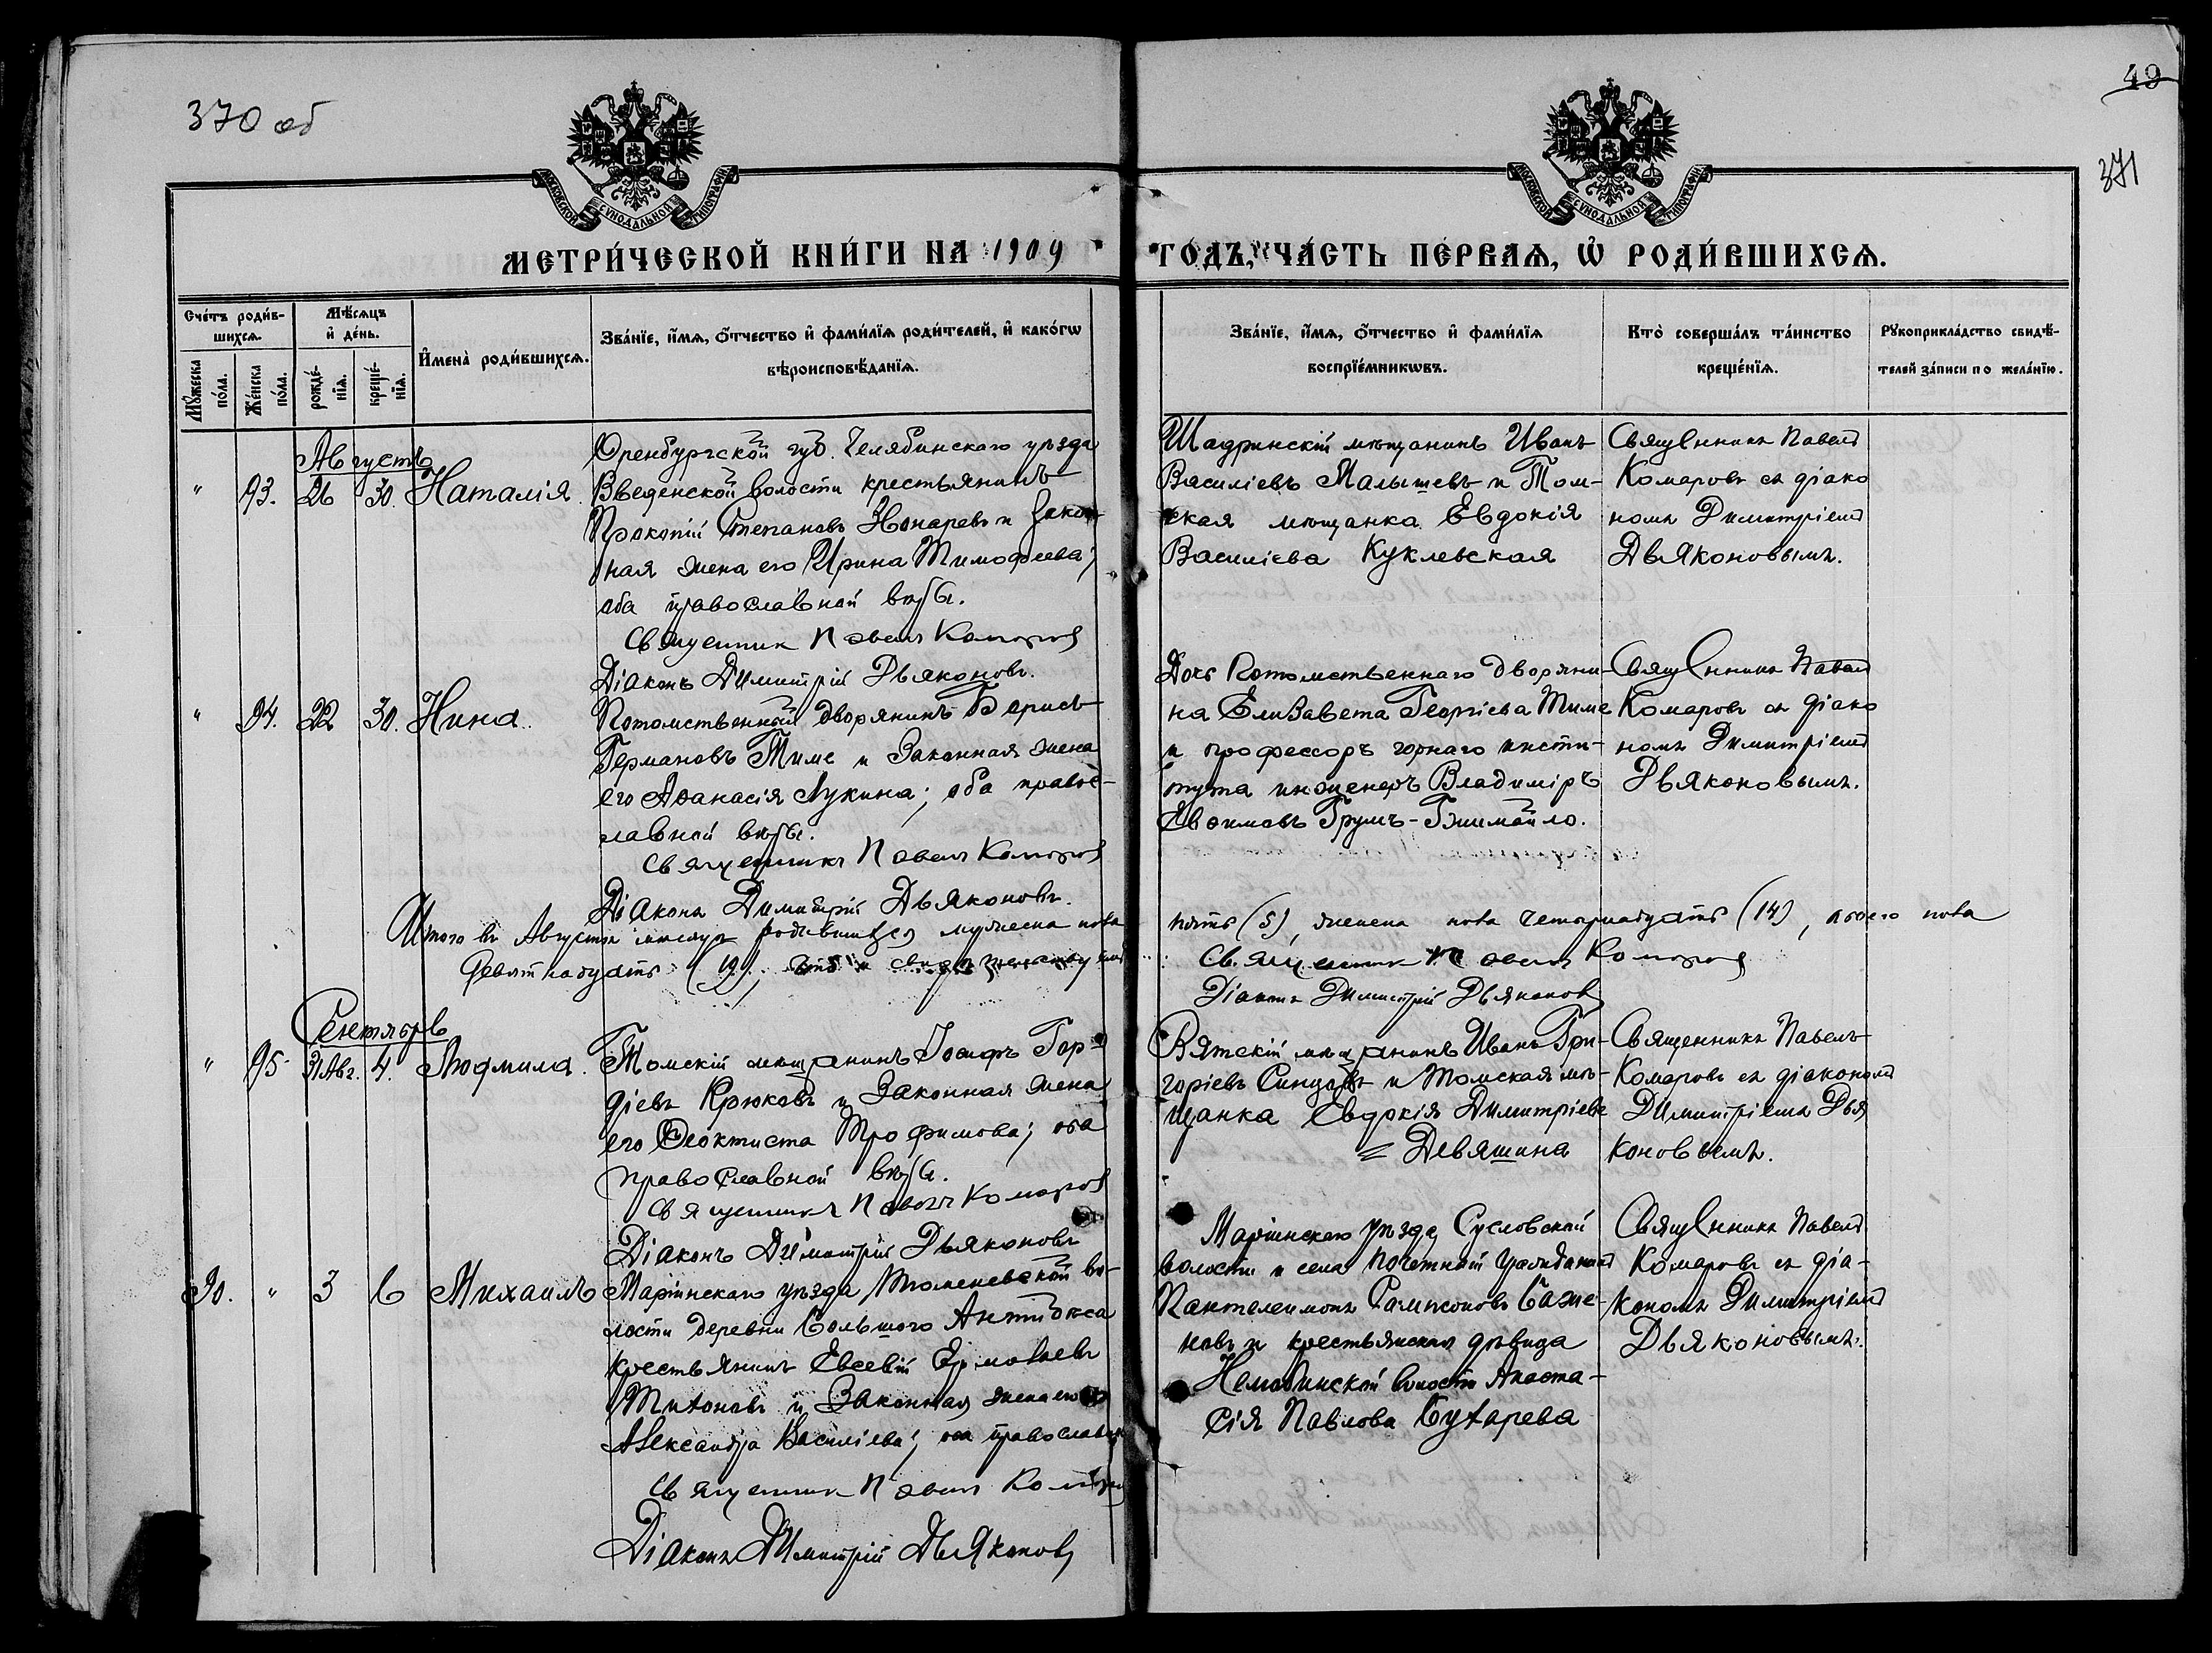 370 об
49
371
МОСКОВСКОЙ СѴНОДАЛЬНОЙ ТИПОГРАФІИ
МОСКОВСКОЙ СѴНОДАЛЬНОЙ ТИПОГРАФІИ
МЕТРИ́ЧЕСКОЙ КНИ́ГИ НА 1909
ГОДЪ, ЧА́СТЬ ПЕ́РВАѦ, Ѡ҆ РОДИ́ВШИХСѦ.
Сче́тъ роди́в-
шихсѧ.
Мꙋ́жеска по́ла.
Же́нска по́ла.
Мѣ́сѧцъ
и҆ де́нь.
рожде́-
нїѧ.
креще́-
нїѧ.
И҆мена̀ роди́вшихсѧ.
Зва́нїе, и҆́мѧ, ѻ҆́тчество и҆ фами́лїѧ роди́телей, и҆ како́гѡ
вѣроисповѣ́данїѧ.
Зва́нїе, и҆́мѧ, ѻ҆́тчество и҆ фами́лїѧ
воспрїе́мникѡвъ.
Кто̀ соверша́лъ та́инство
креще́нїѧ.
Рꙋкоприкла́дство свидѣ́-
телей за́писи по жела́нїю.
Августъ
" 93. 26 30. Наталія.
Оренбургской губ. Челябинского уѣзда
Введенской волости крестьянинъ
Прокопій Степановъ Кокаревъ и закон-
ная жена его Ирина Тимофеева;
оба православной вѣры.
Священник Павелъ Комаров
Діаконъ Димитрій Дьяконовъ.
Шадринскій мѣщанинъ Иванъ
Василіевъ Малышевъ и Том-
ская мѣщанка Евдокія
Василіева Куклевская
Священникъ Павелъ
Комаровъ съ діако
номъ Димитріемъ
Дьяконовымъ.
" 94. 22 30. Нина.
Потомственный дворянинъ Борисъ
Германовъ Тиме и законная жена
его Аѳанасія Лукина; оба правос-
лавной вѣры.
Священникъ Павелъ Комаров
Діаконъ Димитрій Дьяконовъ.
Дочь Потомственнаго дворяни-
на Елизавета Георгіева Тиме
и профессоръ горнаго инсти-
тута инженеръ Владиміръ
Евѳимовъ Грумъ-Гжимайло.
Священникъ Павелъ
Комаровъ съ діако
номъ Димитріемъ
Дьяконовымъ.
Итого въ Августѣ мѣсяцѣ родившихся мужеска пола
девятнадцать (19). Что и свидѣтельствуемъ
пять (5), женска пола четырнадцать (14), обоего пола
Священник Павелъ Комаров
Діаконъ Димитрій Дьяконов
Сентябрь
" 95 31 Авг. 4. Людмила.
Томскій мѣщанинъ Іосифъ Гор-
діевъ Крюковъ и законная жена
его Ѳеоктиста Трофимова; оба
православной вѣры.
Священникъ Павелъ Комаров
Діаконъ Димитрій Дьяконовъ
Вятскій мѣщанинъ Иванъ Гри-
горіевъ Синцовъ и Томская мѣ-
щанка Евдокія Димитріева
Девяшина
Священникъ Павелъ
Комаровъ съ діакономъ
Димитріемъ Дья
коновымъ.
90. " 3 6 Михаилъ
Маріинскаго уѣзда Тюменевской во-
лости деревни Большого Антибеса
крестьянинъ Евсевій Ермолаевъ
Тихоновъ и законная жена его
Александра Василіева; оба православ
Священник Павелъ Комаров
Діаконъ Димитрій Дьяконов
Маріинскаго уѣзда Сусловской
волости и села почетный гражданинъ
Пантелеимонъ Сампсоновъ Баже-
новъ и крестьянская дѣвица
волости Анаста-
сія Павлова Бухарева
Священникъ Павелъ
Комаровъ съ діа-
кономъ Димитріемъ
Дьяконовымъ.